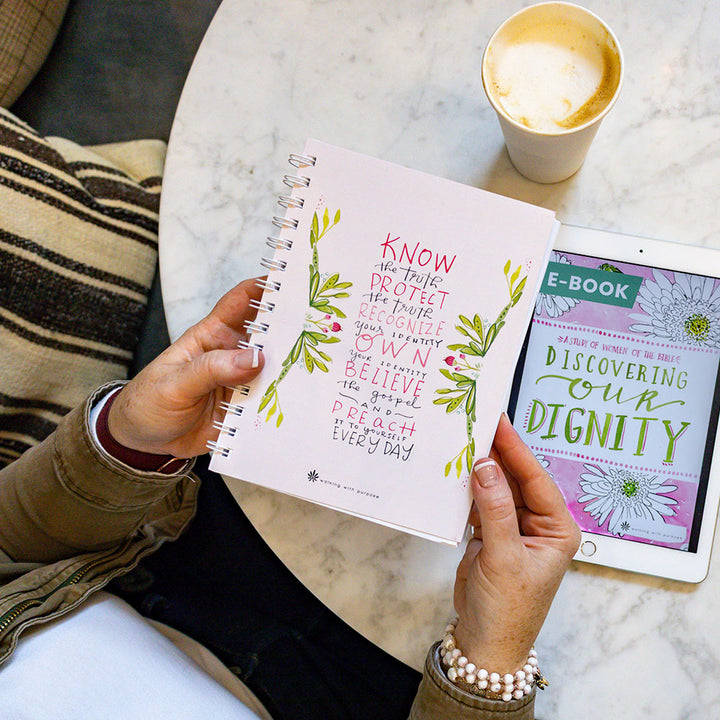 KNOW
the truth
PROTECT
the truth
RECOGNIZE
your IDENTITY
OWN
your IDENTITY
BELIEVE
the gospel
AND
PREACH
IT TO YOURSELF
EVERY DAY
walking with purpose
E-BOOK
A STUDY OF WOMEN OF THE BIBLE
DISCOVERING
our
DIGNITY
walking with purpose